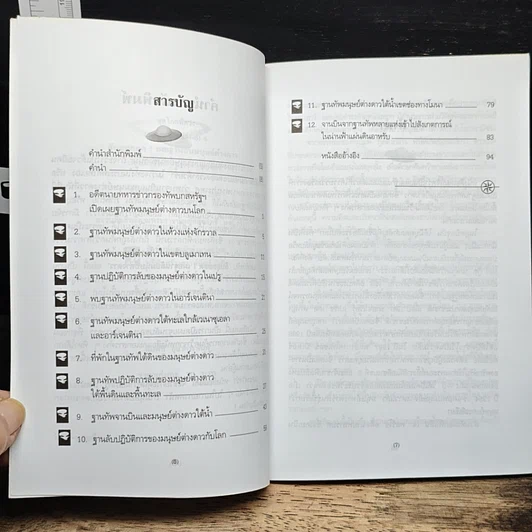 สารบัญ
คำนำสำนักพิมพ์
คำนำ
1. อดีตนายทหารข่าวกรองทัพบกสหรัฐฯ
เปิดเผยฐานทัพมนุษย์ต่างดาวบนโลก
2. ฐานทัพมนุษย์ต่างดาวในห้วงแห่งจักรวาล
3. ฐานทัพมนุษย์ต่างดาวในเขตบลูเมาเทน
4. ฐานปฏิบัติการลับของมนุษย์ต่างดาวในเปรู
5. พบฐานทัพมนุษย์ต่างดาวในอาร์เจนตินา
6. ฐานทัพมนุษย์ต่างดาวใต้ทะเลใกล้เวเนซุเอลา
และอาร์เจนตินา
7. ที่พักในฐานทัพใต้ดินของมนุษย์ต่างดาว
8. ฐานทัพปฏิบัติการลับของมนุษย์ต่างดาว
ใต้พื้นดินและพื้นทะเล
9. ฐานทัพจานบินและมนุษย์ต่างดาวใต้น้ำ
10. ฐานลับปฏิบัติการของมนุษย์ต่างดาวกับโลก
(6)
11. ฐานทัพมนุษย์ต่างดาวใต้น้ำเขตช่องทางโมนา 79
12. จานบินจากฐานทัพหลายแห่งเข้าไปสังเกตการณ์
ในน่านฟ้าแผ่นดินอาหรับ 83
หนังสืออ้างอิง 94
(7)